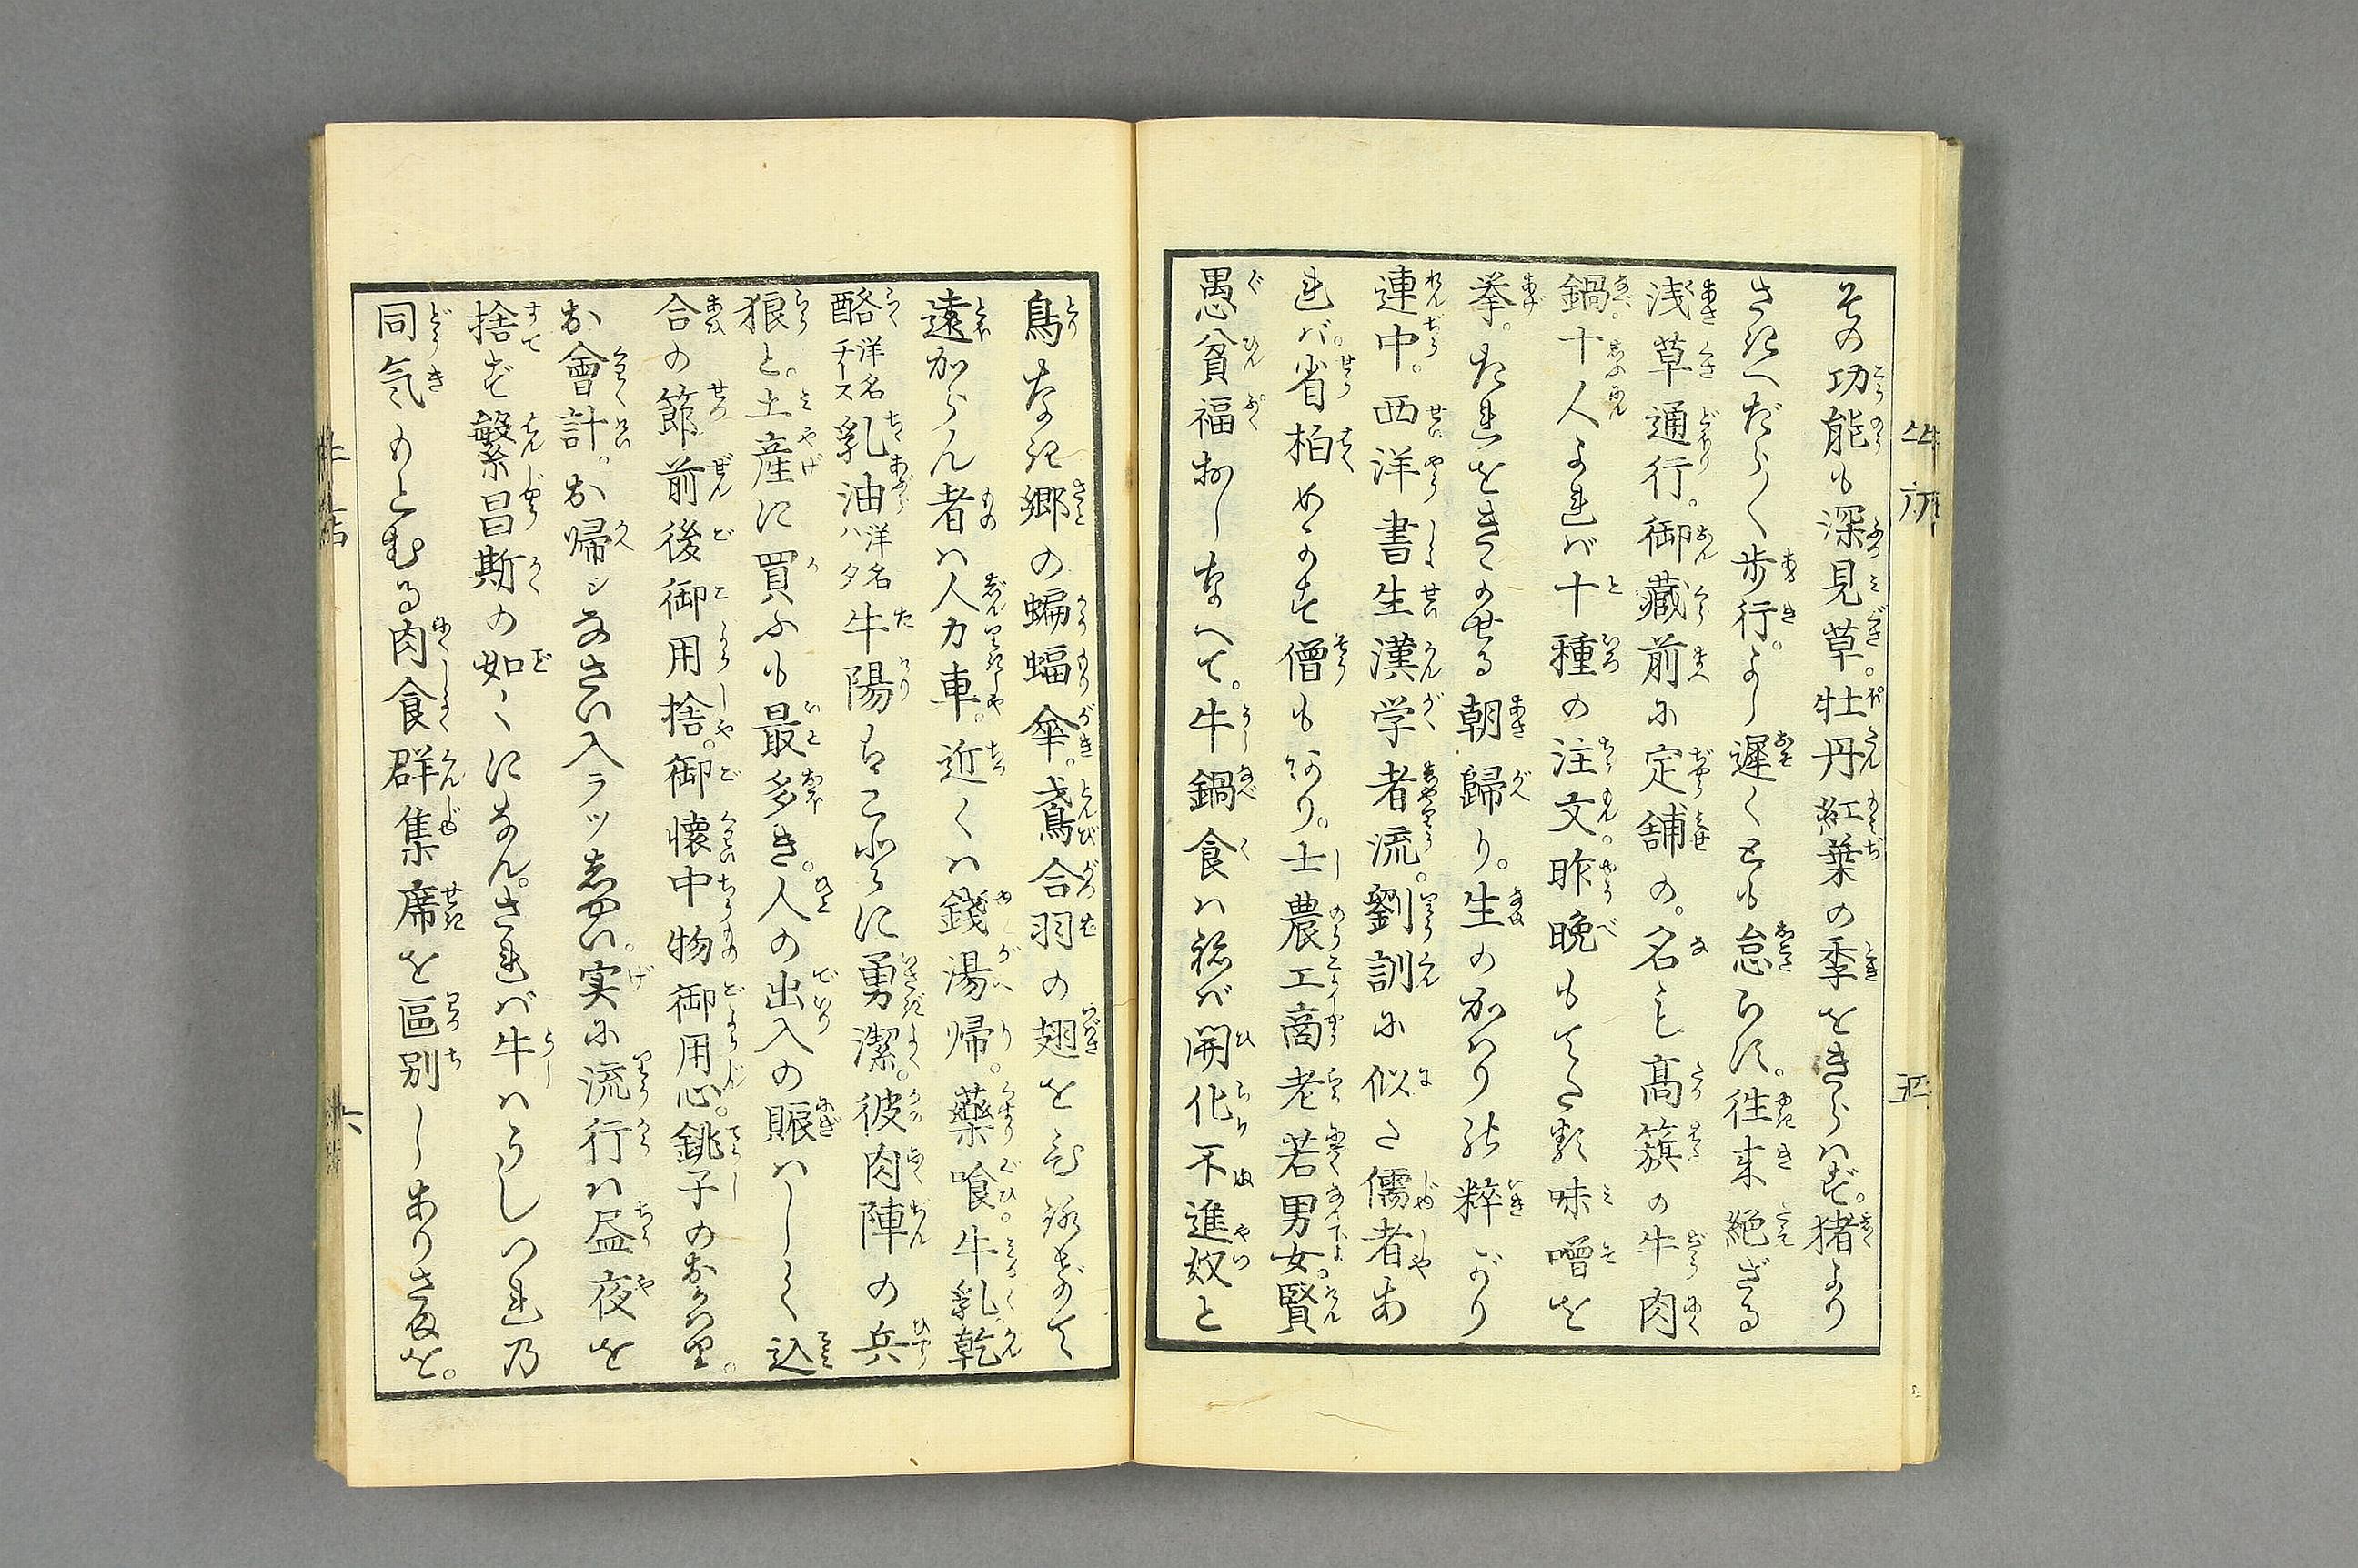 その功能も深見草。牡丹紅葉の季をきらはず。猪より
さきへだらく歩行。よし遅くとも怠らず。往来絶ざる
浅草通行。御藏前に定舗の。名も高籏の牛肉
鍋。十人よれば十種の注文。昨晩もてた味噌を
挙。たれをきかせる朝歸り。生のかはり粋がり
連中。西洋書生漢学者流。劉訓に似た儒者あ
れバ。省柏めかす僧もあり。士農工商老若男女。賢
愚貧福おしなべて。牛鍋食ハねバ開化不進奴と
鳥なき郷の蝙蝠傘。鳶合羽の翅を
遠からん者ハ人力車。近くハ銭湯帰。藥喰。牛乳。乾
酪洋名チース乳油洋名ハタ牛陽はことに勇潔。彼肉陣の兵
狼と。土産に買ふも最多き。人の出入の賑ハしく込
合の節前後御用捨。御懐中物御用心。銚子のおかはり。
お會計。お帰ンなさい入ラツしやい。実に流行ハ昼夜を
捨ず繁昌斯の如くになん。されバ牛ハうしづれ乃
同気もとむる肉食群集席を區別しありさまを。
牛店
五
六